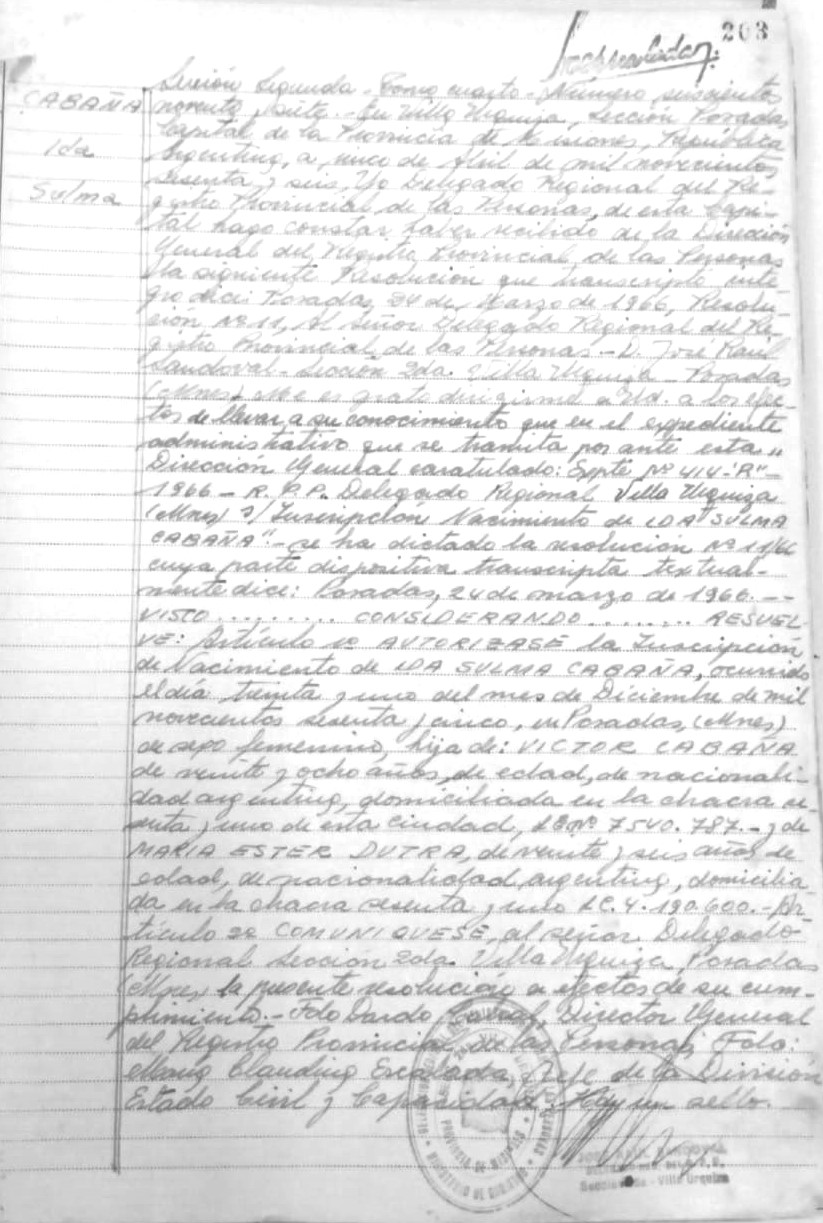 203
CABAÑA
Ida
Sulma
Sección Segunda - Tomo cuarto - Número seiscientos
noventa y siete.- En Villa Urquiza, Sección Posadas
Capital de la Provincia de Misiones, República
Argentina, a cinco de Abril de mil novecientos
sesenta y seis, Yo Delegado Regional del Re-
gistro Provincial de las Personas, de esta Capi-
tal hago constar haber recibido de la Dirección
General del Registro Provincial de las Personas
la siguiente Resolución que transcripta ínte-
gro dice: Posadas, 24 de Marzo de 1966, Resolu-
ción Nº 11, Al Señor Delegado Regional del Re-
gistro Provincial de las Personas - D. José Raúl
Sandoval - Sección 2da. Villa Urquiza - Posadas
(Mnes) Me es grato dirigirme a Ud. a los efec-
tos de llevar a su conocimiento que en el expediente
administrativo que se tramita por ante esta
Dirección General caratulado: Expte Nº 414-"R"-
1966 - R.P.P. Delegado Regional Villa Urquiza
(Mnes) s/ Inscripción Nacimiento de IDA SULMA
CABAÑA".- se ha dictado la resolución Nº 11/66
cuya parte dispositiva transcripta textual-
mente dice: Posadas, 24 de marzo de 1966. --
VISTO......... CONSIDERANDO........ RESUEL-
VE: Artículo 1º AUTORIZASE la Inscripción
de Nacimiento de IDA SULMA CABAÑA, ocurrido
el día treinta y uno del mes de Diciembre de mil
novecientos sesenta y cinco, en Posadas, (Mnes)
de sexo femenino, hija de: VICTOR CABAÑA
de veinte y ocho años, de edad, de nacionali-
dad argentina, domiciliada en la chacra se-
senta y uno de esta ciudad, LE Nº 7540.787.- y de
MARIA ESTER DUTRA, de veinte y seis años de
edad, de nacionalidad argentina, domicilia-
da en la chacra sesenta y uno LC. 4.190.600.- Ar-
tículo 2º COMUNIQUESE, al señor Delegado
Regional Sección 2da. Villa Urquiza, Posadas
(Mnes) la presente resolución a efectos de su cum-
plimiento.- Fdo Dardo Director General
del Registro Provincial de las Personas, Fdo:
Claudina Escalada, Jefe de la División
Estado Civil y Capacidad. Hay un sello.
PROVINCIA DE MISIONES
MINISTERIO DE GOBIERNO
JOSE RAUL SANDOVAL
Sección 2da - Villa Urquiza